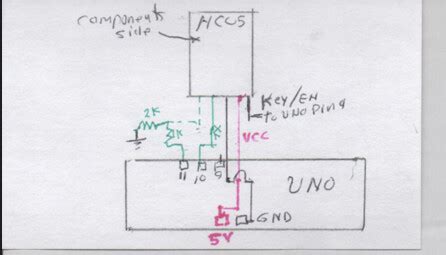 component
side
HC05
2K
1K
Key/EN
to UNO Pin 9
VCC
11
10
9
UNO
5V
GND